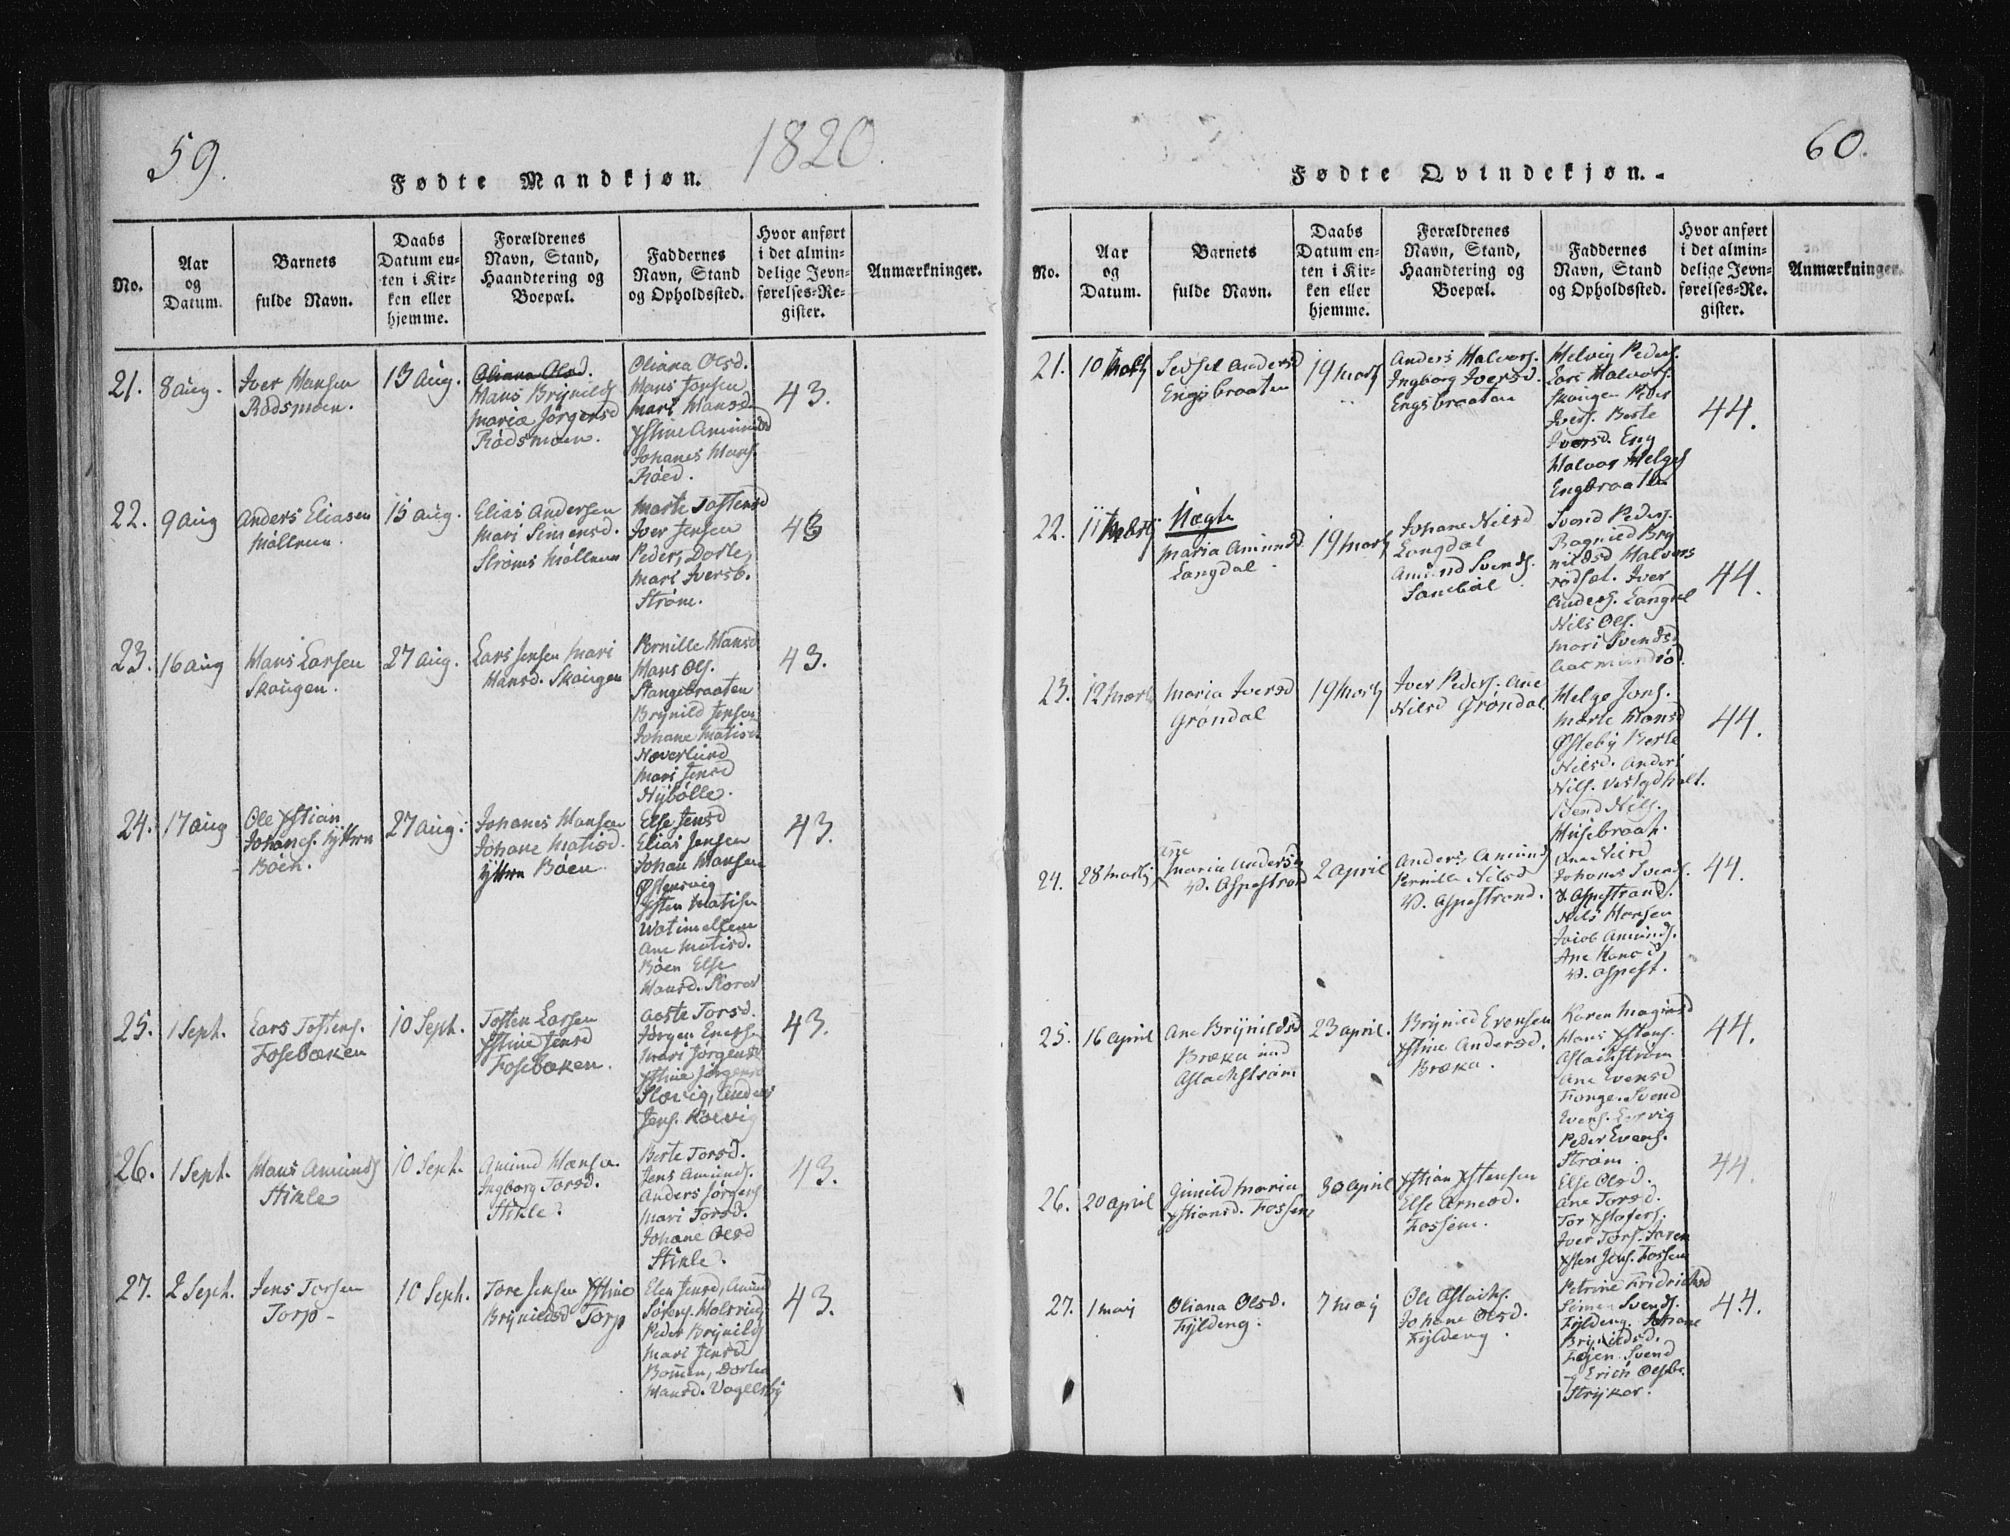 59.
1820.
Fødte Mandkjøn.
No.
Aar
og
Datum.
Barnets
fulde Navn.
Daabs
Datum en-
ten i Kir-
ken eller
hjemme.
Forældrenes
Navn, Stand,
Haandtering og
Boepæl.
Faddernes
Navn, Stand
og Opholdssted.
Hvor anført
i det almin-
delige Jevn-
førelses-Re-
gister.
Anmærkninger.
21.
8 aug.
Iver Hansen
Rødsmoen.
13 aug.
Oliana Olsd.
Hans Brynilds
Maria Jørgensd
Rødsmoen.
Oliana Olsd.
Hans Jonsen
Mari Hansd
Xstine Amundsd
Johanes Hans.
Røed.
43.
22.
9 aug
Anders Eliasen
Mølleren.
15 aug.
Elias Andersen
Mari Simensd.
Strøms Mølleren
Marte Tostensd
Iver Jensen
Peder, Dorte,
Mari Iversb.
Strøm.
43
23.
16 aug
Hans Larsen
Skougen.
27 aug.
Lars Jensen Mari
Hansd. Skougen
Pernille Hansd
Hans Ols.
Stangebraaten
Brynild Jensen
Johane Matisd
Haverlund
Mari Jensd
Nybølle.
43.
24.
17 aug
Ole Xstian
Johanes. Yttern
Böen.
27 aug.
Johanes Hansen
Johane Matisd.
Yttern Böen
Else Jensd
Elias Jensen
Johan Hansen
Østensvig
Ane Matisd.
Böen Else
Hansd.
43.
25.
1 Sept.
Lars Tostens.
Fosebæken
10 Sept.
Tosten Larsen
Xstine Jensd
Fosebæken.
Aaste Torsd.
Jørgen
Mari Jørgensd
Xstine Jørgensd
Anders
Jens.
43.
26.
1 Sept.
Hans Amunds
Stikle
10 Sept.
Amund Hansen
Ingborg Torsd.
Stikle.
Berte Torsd.
Jens Amunds.
Anders Jørgens
Mari Torsd.
Johane Olsd
Stikle.
43.
27.
2 Sept.
Jens Torsen
Torp
10 Sept.
Tore Jensen Xstine
Brynildsd Torp
Elen Jensd, Amund
Peder Brynilds
Mari Jensd
Bommen, Dortea
Hansd.
43.
60.
Fødte Qvindekjøn.
No.
Aar
og
Datum.
Barnets
fulde Navn.
Daabs
Datum en-
ten i Kir-
ken eller
hjemme.
Forældrenes
Navn, Stand,
Haandtering og
Boepæl.
Faddernes
Navn, Stand
og Opholdssted.
Hvor anført
i det almin-
delige Jevn-
førelses-Re-
gister.
Anmærkninger.
21.
10 Marts
Sedsel Andersd
Engsbraaten
19 Marts
Anders Halvors.
Ingborg Iversd.
Engsbraaten
Helvig Peders.
Lars Halvors.
Skougen Peder
Ivers. Berte
Iversd. Eng
Halvor Helges
Engsbraaten
44.
22.
11 Marts
Uægte
Maria Amundsd
Langdal
19 Marts
Johane Nilsd
Langdal
Amund Svends.
Sanebøl
Svend Peders.
Ragnild Bry
nildsd Halvors
rødsæt. Iver
Anders. Langdal
Nils Ols.
Mari Svendsd
Aasmundrød.
44.
23.
12 Marts
Maria Iversd
Grøndal
19 Marts
Iver Peders. Ane
Nilsd Grøndal
Helge Jons.
Marte Hansd
Østeby Berte
Nilsd. Anders
Nils.
Svend Nils.
Husebraat.
44.
24.
28 Marts
Ane
Maria Andersd
V. Aspestrand
2 April
Anders Amunds
Pernille Nilsd
V. Aspestrand.
Ane Nilsd
Johanes Svends.
V. Aspestrand.
Nils Hansen
Jacob Amunds.
Ane Hansd
V. Aspest.
44.
25.
16 april
Ane Brynildsd
Bræka ind
Aslachstrøm
23 april.
Brynild Evensen
Xstine Andersd.
Bræka.
Karen Magnusd
Hans Xstens.
Aslachstrøm
Ane Evensd
Svend
Ivers.
Peder Evens.
Strøm.
44.
26.
20 april
Gunild Maria
Xstiansd. Fossem
30 april
Xstian Xstensen
Else Arnesd.
Fossem.
Else Olsd.
Ane Torsd.
Tor Xstofers.
Iver Tors. Karen
Xsten Jens. Fossem
44.
27.
1 maj
Oliana Olsd.
Fyldeng.
7 maj
Ole Aslachs.
Johane Olsd.
Fyldeng.
Petrine Fridrichsd
Simen Svends.
Fyldeng. Johane
Brynildsd.
Svend
Erich
Stryker.
44.